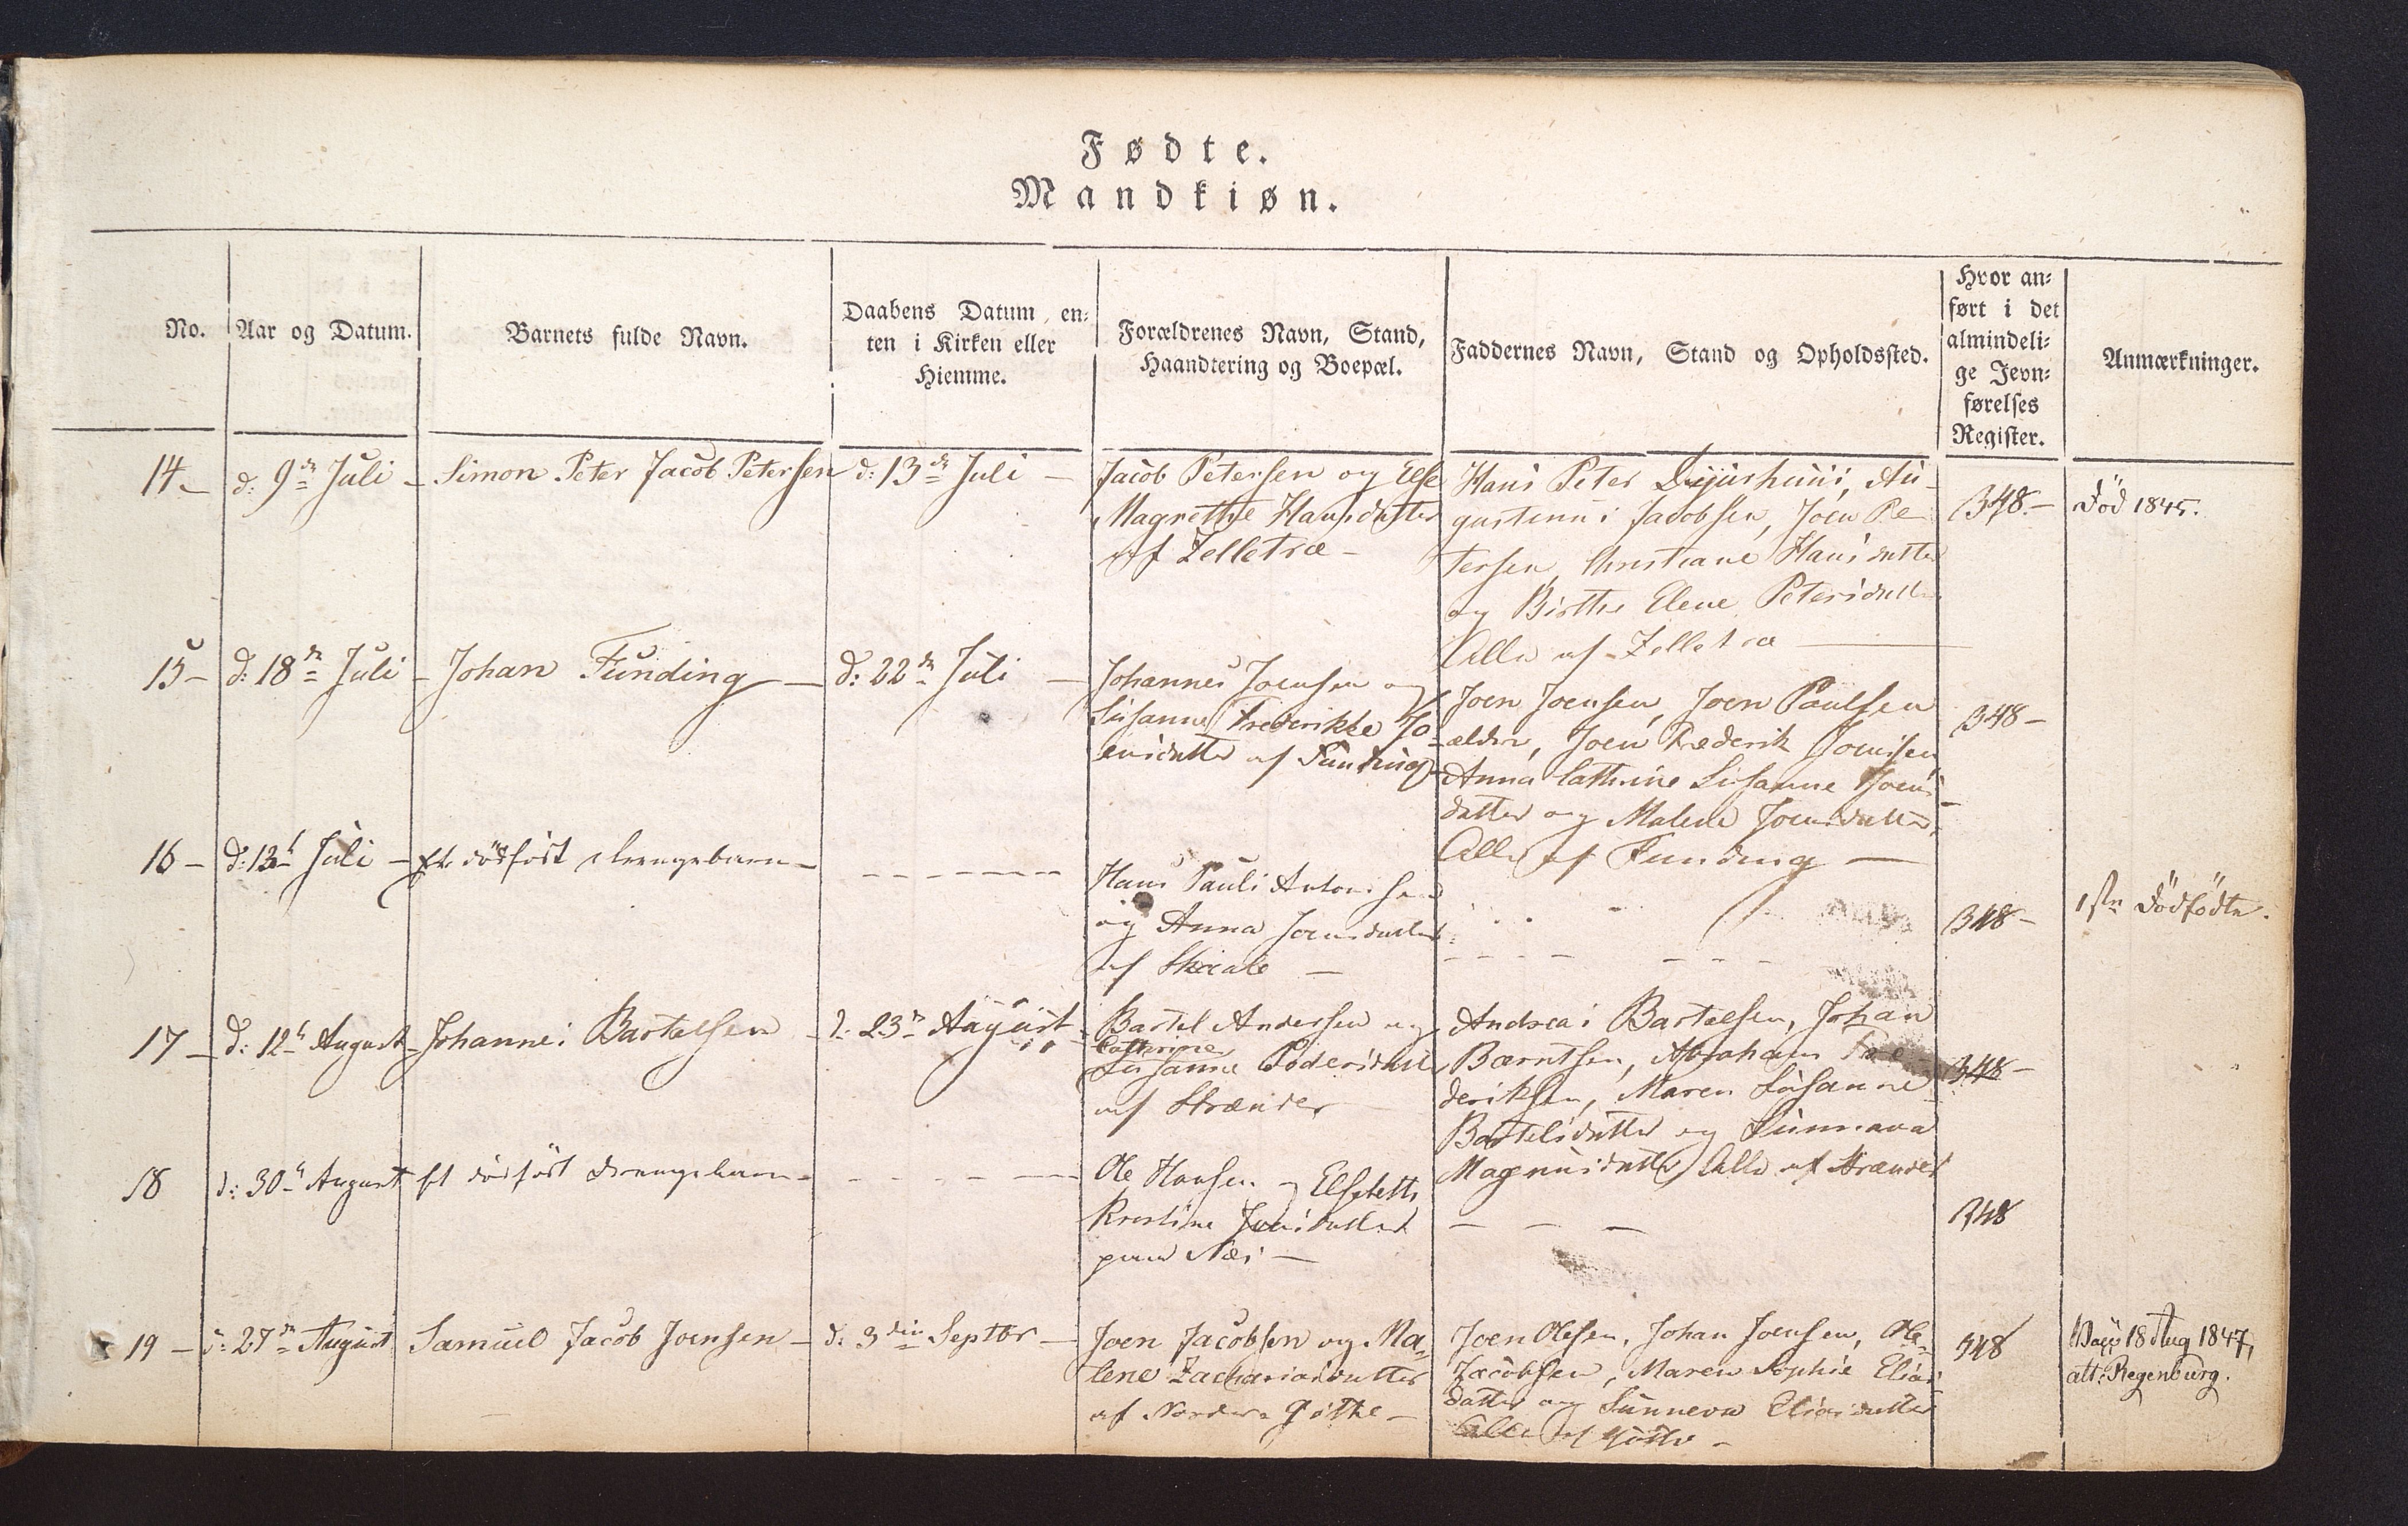 Fødte.
Mandkiøn.
No.
Aar og Datum.
Barnets fulde Navn.
Daabens Datum, en-
ten i Kirken eller
Hiemme.
Forældrenes Navn, Stand,
Haandtering og Boepæl.
Faddernes Navn, Stand og Opholdssted.
Hvor an-
ført i det
almindeli-
ge Jevn-
førelses
Register.
Anmærkninger.
14 -
d: 9de Juli -
Simon Peter Jacob Petersen
d: 13de Juli -
Jacob Petersen og Else
Magrethe Hansdatter
af Zelletræ -
Hans Peter Djurhuus, Au-
gustinus Jacobsen, Joen Pe-
tersen, Christiane Hansdatter
og Birthe Elene Petersdatter
Alle af Zelletræ
B48. -
Död 1845.
15 -
d: 18de Juli -
Johan Funding -
d: 22de Juli -
Johannes Joensen og
Susanne Frederikke Jo-
ensdatter af Funding
Joen Joensen, Joen Paulsen
ældre, Joen Frederik Joensen
Anna Cathrine Susanne Joens-
datter og Malene Joensdatter,
Alle af Funding
B48 -
16 -
d: 13de Juli -
Et dödföst drengebarn -
Hans Pauli Antonisen
og Anna Joensdatter
af Skaale -
B48 -
1ste Dödfödte.
17 -
d: 12te August -
Johannes Bartelsen -
d: 23de August -
Bartel Andersen og
Cathrine
Susanne Poderisdatter
af Strænder
Andreas Bartelsen, Johan
Berntsen, Abraham Fre-
deriksen, Maren Susanne
Bartelsdatter og Sunnava
Magnusdatter, Alle af Strænder
B48 -
18
d: 30te August
Et dödföst drengebarn -
Ole Hansen og Elsebeth
Kristine Joensdatter
paa Næs -
B48
19 -
d: 27de August
Samuel Jacob Joensen -
d: 3die Septbr -
Joen Jacobsen og Ma-
lene Zachariasdatter
af Nordre Gøthe -
Joen Olesen, Johan Joensen, Ole
Jacobsen, Maren Sophie Elias-
datter og Sunneva Eliasdatter
Alle af Göthe -
B48
Vacc 18 Aug 1847,
att: Regenburg.